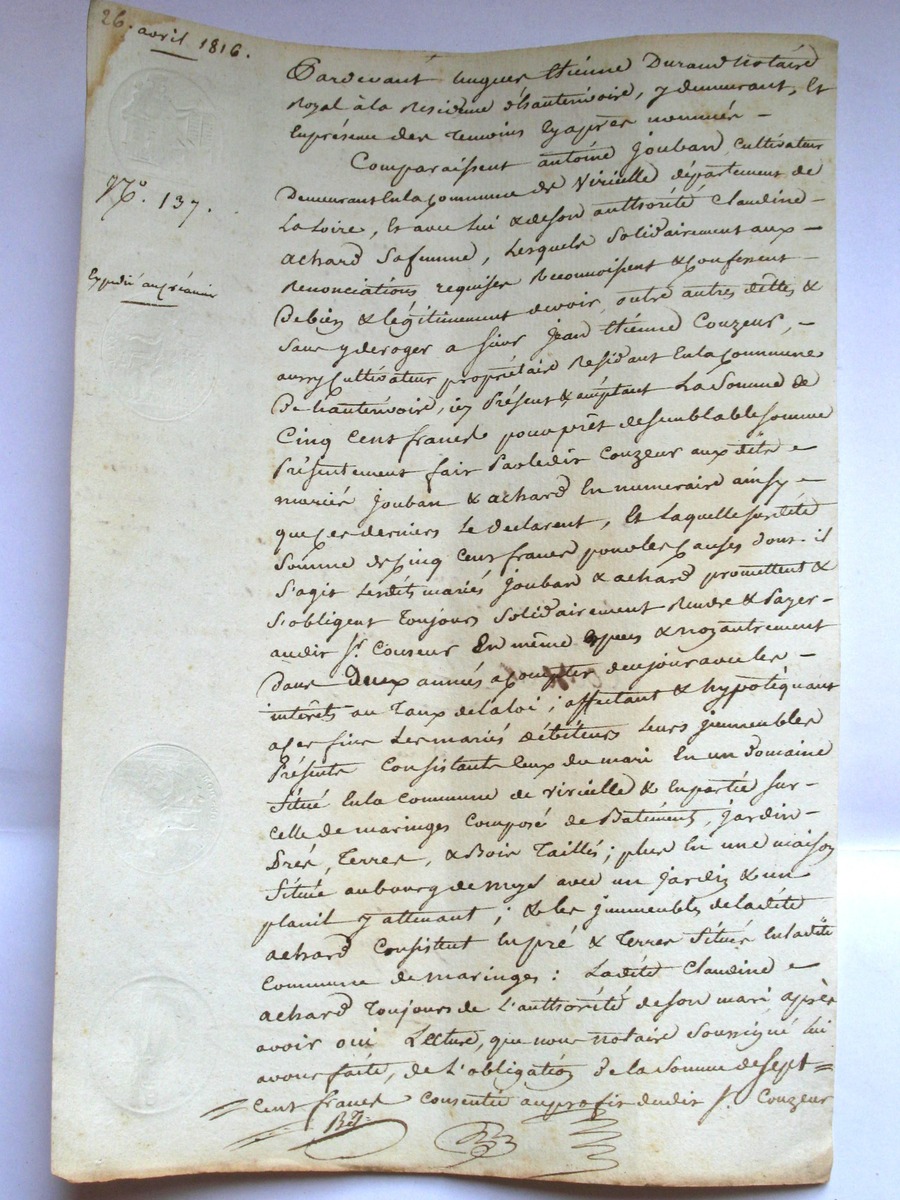 26. avril 1816.
N.o 137.
Expédié au créancier
Pardevant hugues Etienne Durand Notaire
Royal à la Residence d'hauterivoire, y demeurant, Et
En présence des Temoins Cy après nommés –
Comparaissent antoine Jouban Cultivateur
Demeurant En la Commune de Viricelle département de
La Loire, Et avec lui & de son authorité Claudine –
achard Sa femme, Lesquels Solidairement aux –
Renonciations requises Reconnoissent & Confessent
De bien & légitimement devoir, outre autres dettes &
Sans y deroger a sieur Jean Etienne Couzeur, –
aussy Cultivateur propriétaire Residant En la Commune
De hauterivoire, icy Présent & acceptant La Somme de
Cinq Cent francs pour prêt de semblable somme
Présentement fait Par ledit Couzeur aux dits
mariés Jouban & achard En numeraire ainsy
que Ces derniers Le declarent, Et Laquelle susdite
Somme de Cinq Cent francs pour les Causes dont il
S'agit Lesdits mariés Jouban & achard promettent &
S'obligent Toujours Solidairement Rendre & Payer –
audit Sr. Couseur En même Espèces & non autrement
Dans Deux années a Compter de ce jour avec les –
intérêts au Taux de la loi ; affectant & hypotéquant
a Ces fins Les mariés débiteurs Leurs jmmeubles
Présents Consistants Ceux du mari En un Domaine
Situé En la Commune de Viricelle & En partie sur –
Celle de maringes Composé de Batiments, Jardin –
Prés, Terres, & Bois Taillis ; plus En une maison
Située au bourg de meys avec un Jardin & un
planil y attenant ; & les jmmeubles de ladite
achard Consistent En pré & Terres Situés En ladite
Commune de maringes : Ladite Claudine
achard Toujours de L'authorité de son mari après
avoir oui Lecture, que nous notaire Soussigné lui
avons faite, de L'obligation de la Somme de sept =
Cent francs Consentie au profit dudit Sr. Couzeur